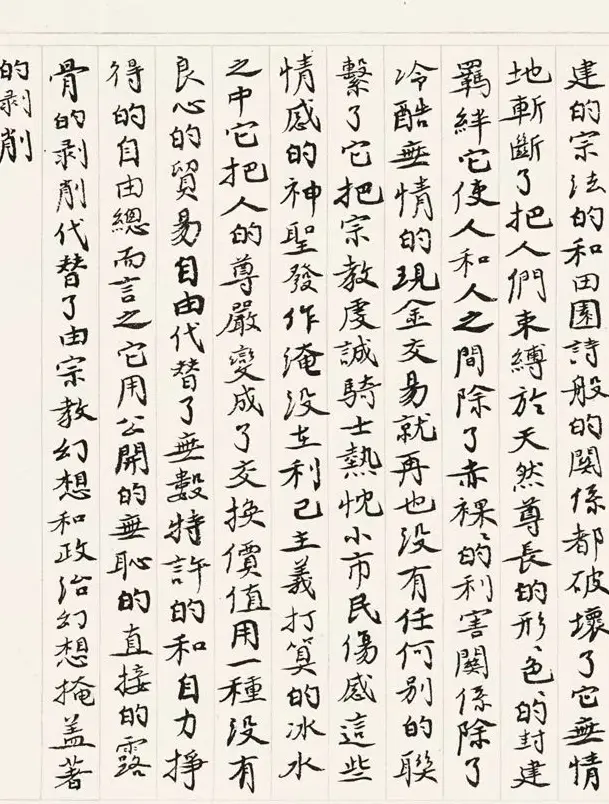 建的宗法的和田園詩般的關係都破壞了它無情
地斬斷了把人們束縛於天然尊長的形、色、的封建
羈絆它使人和人之間除了赤裸、的利害關係除了
冷酷無情的現金交易就再也没有任何別的聯
繫了它把宗教虔誠騎士熱忱小市民傷感這些
情感的神聖發作淹没在利己主義打算的冰水
之中它把人的尊嚴變成了交換價值用一種没有
良心的貿易自由代替了無數特許的和自力掙
得的自由總而言之它用公開的無恥的直接的露
骨的剥削代替了由宗教幻想和政治幻想掩盖著
的剥削